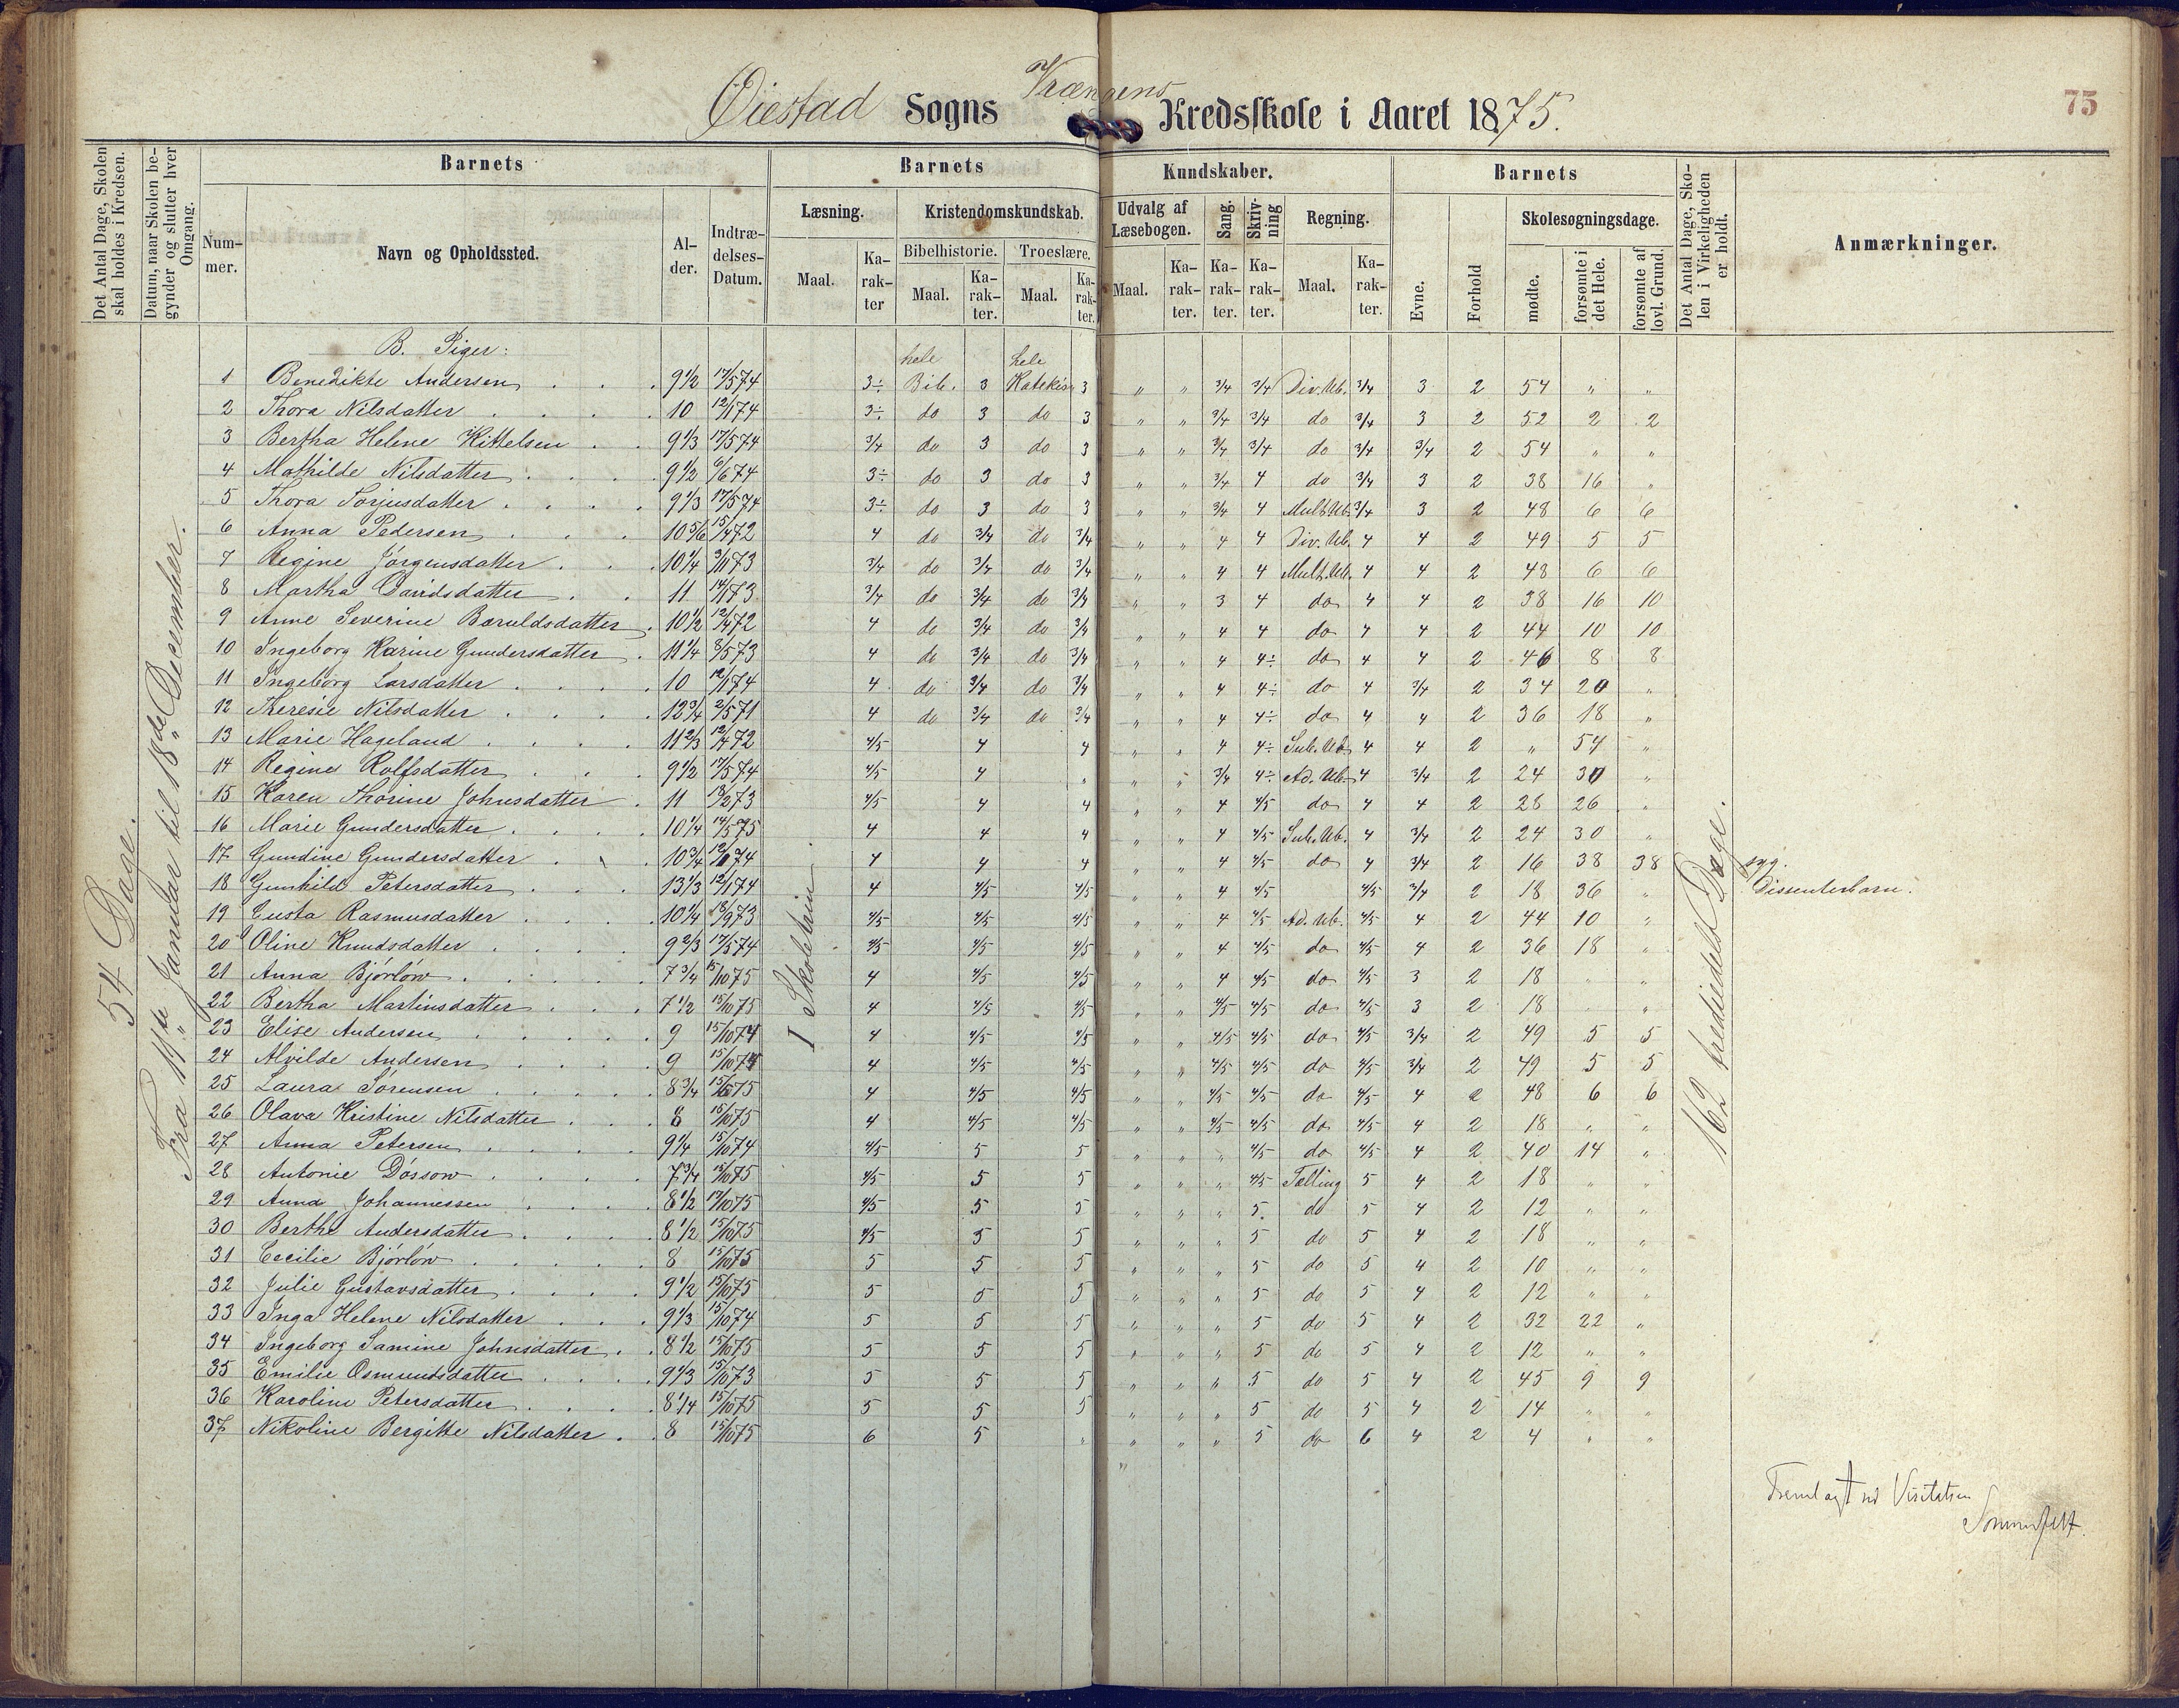 Øiestad Sogns Vrængens Kredsskole i Aaret 1875.
75
Det Antal Dage, Skolen skal holdes i Kredsen.
Datum, naar Skolen begynder og slutter hver Omgang.
Barnets
Barnets
Kundskaber.
Barnets
Det Antal Dage, Skolen i Virkeligheden er holdt.
Anmærkninger.
Nummer.
Navn og Opholdssted.
Alder.
Indtrædelses-Datum.
Læsning.
Kristendomskundskab.
Udvalg af Læsebogen.
Sang.
Skrivning
Regning.
Evne.
Forhold
Skolesøgningsdage.
Maal.
Karakter
Bibelhistorie.
Troeslære.
Maal.
Karakter.
Maal.
Karakter.
Maal.
Karakter.
Karakter.
Karakter.
Maal.
Karakter.
mødte.
forsømte i det Hele.
forsømte af lovl. Grund.
54 Dage.
Fra 11te Januar til 18de December.
I Skoletrin
162 trediedels Dage.
B. Piger:
hele hele
1 Benedikte Andersen 9 1/2 17/5 74 3÷ Bib. 3 Katekism 3 " " 3/4 3/4 Div. Ub. 3/4 3 2 54 " "
2 Thora Nilsdatter 10 12/1 74 3÷ do 3 do 3 " " 3/4 3/4 do 3/4 3 2 52 2 2
3 Bertha Helene Kittelsen 9 1/3 17/5 74 3/4 do 3 do 3 " " 3/4 3/4 do 3/4 3/4 2 54 " "
4 Mathilde Nilsdatter 9 1/2 6/6 74 3÷ do 3 do 3 " " 3/4 4 do 3/4 3 2 38 16 "
5 Thora Torjusdatter 9 1/3 17/5 74 3÷ do 3 do 3 " " 3/4 4 Mult. Ub. 3/4 3 2 48 6 6
6 Anna Pedersen 10 5/6 15/4 72 4 do 3/4 do 3/4 " " 4 4 Div. Ub. 4 4 2 49 5 5
7 Regine Jörgensdatter 10 1/4 3/11 73 3/4 do 3/4 do 3/4 " " 4 4 Mult. Ub. 4 4 2 48 6 6
8 Martha Davidsdatter 11 14/1 73 3/4 do 3/4 do 3/4 " " 3 4 do 4 4 2 38 16 10
9 Anne Severine Baruldsdatter 10 1/2 12/4 72 4 do 3/4 do 3/4 " " 4 4 do 4 4 2 44 10 10
10 Ingeborg Karine Gundersdatter 11 1/4 8/5 73 4 do 3/4 do 3/4 " " 4 4÷ do 4 4 2 46 8 8
11 Ingeborg Larsdatter 10 12/1 74 4 do 3/4 do 3/4 " " 4 4÷ do 4 3/4 2 34 20 "
12 Theresie Nilsdatter 12 3/4 2/5 71 4 do 3/4 do 3/4 " " 4 4÷ do 4 4 2 36 18 "
13 Marie Hageland 11 2/3 12/4 72 4/5 4 4 " " 4 4÷ Sub. Ub. 4 4 2 " 54 "
14 Regine Rolfsdatter 9 1/2 17/5 74 4/5 4 " " " 3/4 4÷ Ad. Ub. 4 3/4 2 24 30 "
15 Karen Thorine Johnsdatter 11 18/2 73 4/5 4 4 " " 4 4/5 do 4 4 2 28 26 "
16 Marie Gundersdatter 10 1/4 14/5 75 4 4 4 " " 4 4/5 Sub. Ub. 4 3/4 2 24 30 "
17 Gundine Gundersdatter 10 3/4 12/1 74 4 4 4 " " 4 4/5 do 4 3/4 2 16 38 38 syg.
18 Gunhild Petersdatter 13 1/3 12/1 74 4 4/5 4/5 " " 4 4/5 4/5 3/4 2 18 36 " Dissenterbarn.
19 Gusta Rasmusdatter 10 1/4 18/9 73 4/5 4/5 4/5 " " 4 4/5 Ad. Ub. 4/5 4 2 44 10 "
20 Oline Knudsdatter 9 2/3 17/5 74 4/5 4/5 4/5 " " 4 4/5 do 4/5 4 2 36 18 "
21 Anna Björlöw 7 3/4 15/10 75 4 4/5 4/5 " " 4 4/5 do 4/5 3 2 18 " "
22 Bertha Martinsdatter 7 1/2 15/10 75 4 4/5 4/5 " " 4/5 4/5 do 4/5 3 2 18 " "
23 Elise Andersen 9 15/10 74 4 4/5 4/5 " " 4/5 4/5 do 4/5 3/4 2 49 5 5
24 Alvilde Andersen 9 15/10 74 4 4/5 4/5 " " 4/5 4/5 do 4/5 3/4 2 49 5 5
25 Laura Sörensen 8 3/4 75 4 4/5 4/5 " " 4/5 4/5 do 4/5 4 2 48 6 6
26 Olava Kristine Nilsdatter 8 15/10 75 4 4/5 4/5 " " 4/5 4/5 do 4/5 4 2 18 " "
27 Anna Petersen 9 1/4 15/10 74 4/5 5 5 " " " 4/5 do 4/5 4 2 40 14 "
28 Antonie Dössow 7 3/4 15/10 75 4/5 5 5 " " " 4/5 Tælling 5 4 2 18 " "
29 Anna Johannessen 8 1/2 15/10 75 4/5 5 5 " " " 5 do 5 4 2 12 " "
30 Berthe Andersdatter 8 1/2 15/10 75 4/5 5 5 " " " 5 do 5 4 2 18 " "
31 Cecilie Björlöw 8 15/10 75 5 5 5 " " " 5 do 5 4 2 10 " "
32 Julie Gustavsdatter 9 1/2 15/10 75 5 5 5 " " " 5 do 5 4 2 12 " "
33 Inga Helene Nilsdatter 9 1/3 15/10 74 5 5 5 " " " 5 do 5 4 2 32 22 "
34 Ingeborg Samine Johnsdatter 8 1/2 15/10 75 5 5 5 " " " 5 do 5 4 2 12 " "
35 Emilie Osmundsdatter 9 1/3 15/10 73 5 5 5 " " " 5 do 5 4 2 45 9 9
36 Karoline Petersdatter 8 1/4 15/10 75 5 5 5 " " " 5 do 5 4 2 14 " "
37 Nikoline Bergitte Nilsdatter 8 15/10 75 6 5 " " " " 5 do 6 4 2 4 " "
Fremlagt ved Visitatsen
Sommerfelt.